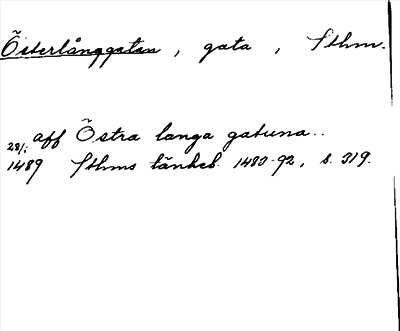 Österlånggatan, gata, Sthm.
28/1 aff Östra langa gatuna..
1489 Sthms tänkeb. 1483-92, s. 319.